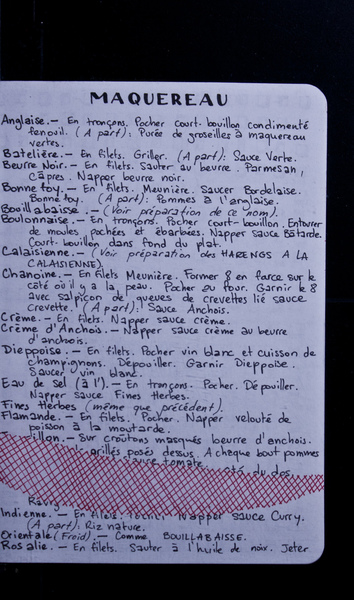 MAQUEREAU
Anglaise.- En tronçons. Pocher court-bouillon condimenté
fenouil. (A part): Purée de groseilles à maquereau
vertes.
Batelière.- En filets. Griller. (A part): Sauce Verte.
Beurre Noir.- En filets. Sauter au beurre. Parmesan,
câpres. Napper beurre noir.
Bonnefoy.- En filets. Meunière. Saucer Bordelaise.
Bonnefoy. (A part): Pommes à l'anglaise.
Bouillabaisse.- (Voir préparation de ce nom).
Boulonnaise.- En tronçons. Pocher court-bouillon. Entourer
de moules pochées et ébarbées. Napper sauce Bâtarde.
Court-bouillon dans fond du plat.
Calaisienne.- (Voir préparation des HARENGS A LA
CALAISIENNE).
Chanoine.- En filets Meunière. Former 8 en farce sur le
côté où il y a la peau. Pocher au four. Garnir le 8
avec salpicon de queues de crevettes lié sauce
Crevette. (A part): Sauce Anchois.
Crème.- En filets. Napper sauce crème.
Crème d'Anchois.- Napper sauce crème au beurre
d'anchois.
Dieppoise.- En filets. Pocher vin blanc et cuisson de
champignons. Dépouiller. Garnir Dieppoise.
Saucer vin blanc.
Eau de sel (à l').- En tronçons. Pocher. Dépouiller.
Napper sauce Fines Herbes.
Fines Herbes (même que précédent).
Flamande.- En filets. Pocher. Napper velouté de
poisson à la moutarde.
illon.- Sur croûtons masqués beurre d'anchois.
grillés posés dessus. A chaque bout pommes
sauce tomate.
côté du dos.
Ravig
Indienne.- En filets. Pocher. Napper sauce Curry.
(A part): Riz nature.
Orientale (Froid).- Comme BOUILLABAISSE.
Rosalie.- En filets. Sauter à l'huile de noix. Jeter